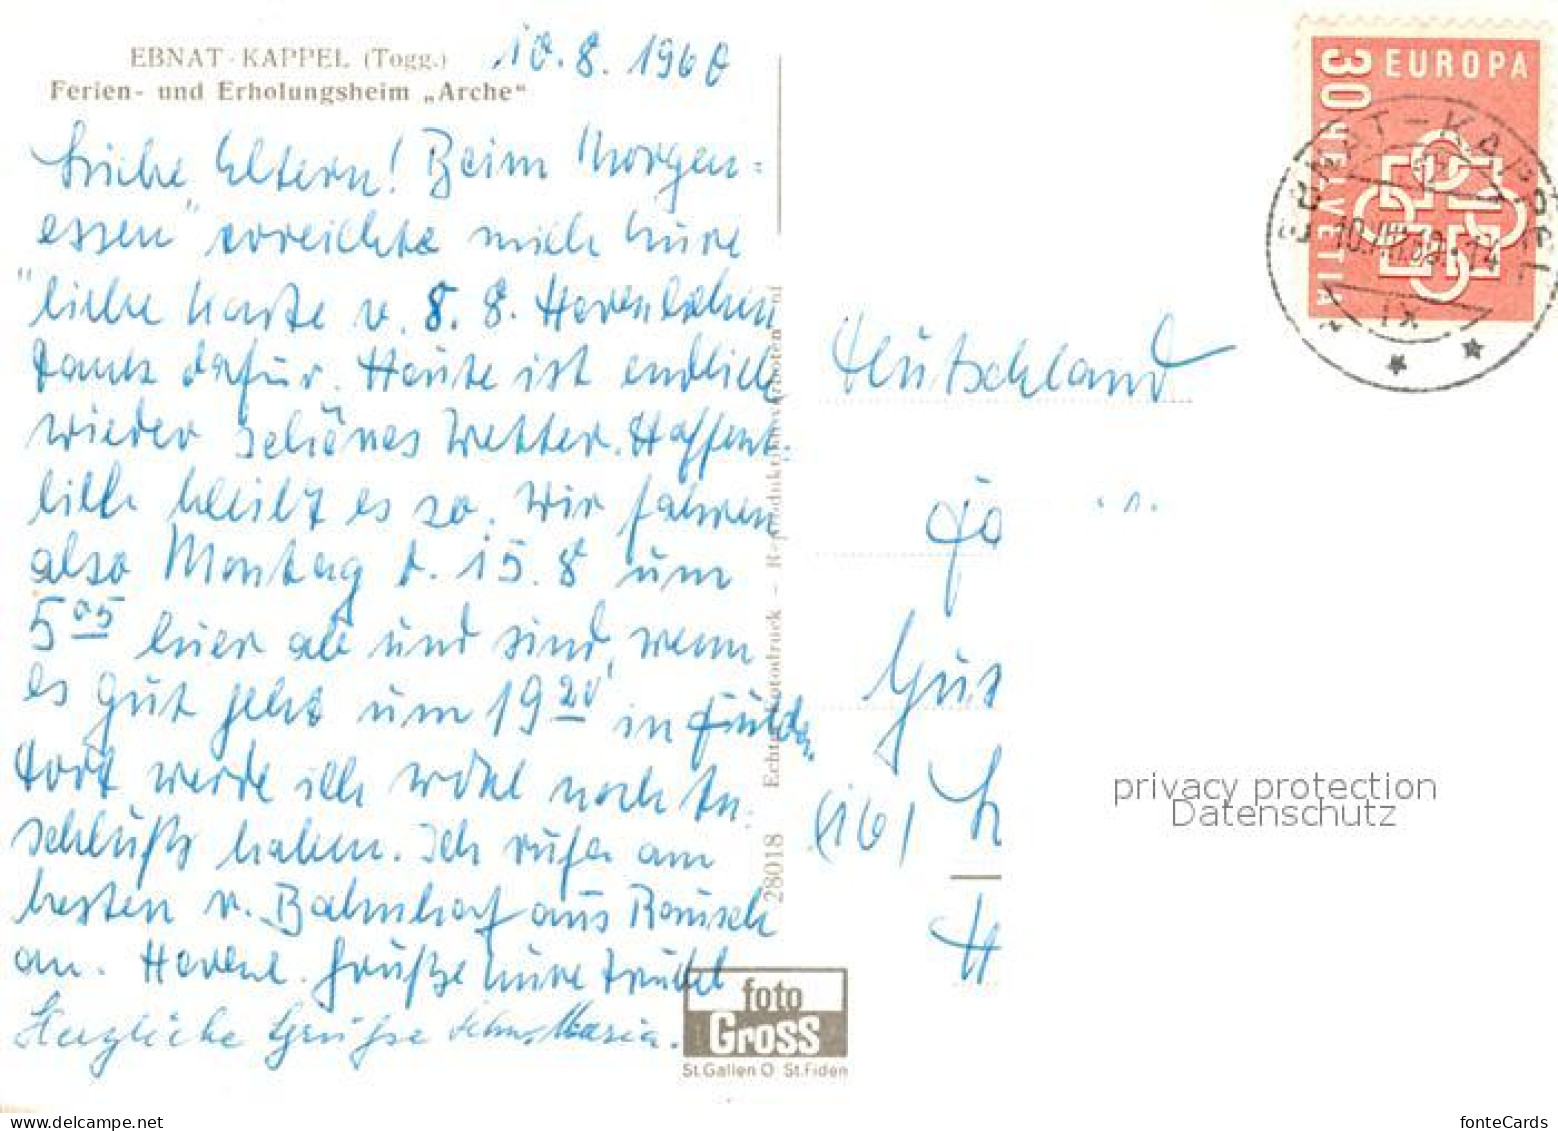 EBNAT-KAPPEL (Togg.)
10.8.1960
Ferien- und Erholungsheim „Arche“
Liebe Eltern! Beim Morgen=
essen" erreichte mich Eure
"liebe Karte v. 8. 8. Herzlichen
Dank dafür. Heute ist endlich
wieder schönes Wetter. Hoffent-
lich bleibt es so. Wir fahren
also Montag d. 15. 8 um
5 05 hier ab und sind, wenn
es gut geht um 19 20 in Fulda.
Dort werde ich wohl noch An-
schluß haben. Ich rufe am
besten v. Bahnhof aus Rausch
an. Herzl. Grüße Eure
Herzliche Grüße Schw. Maria.
28018 Echte Fotodruck – Reproduktion verboten
foto
Gross
St.Gallen O St.Fiden
30 HELVETIA
EUROPA
EBNAT-KAPPEL
10.VIII.60.-14
IX
Deutschland
(16)
privacy protection
Datenschutz
fonteCards